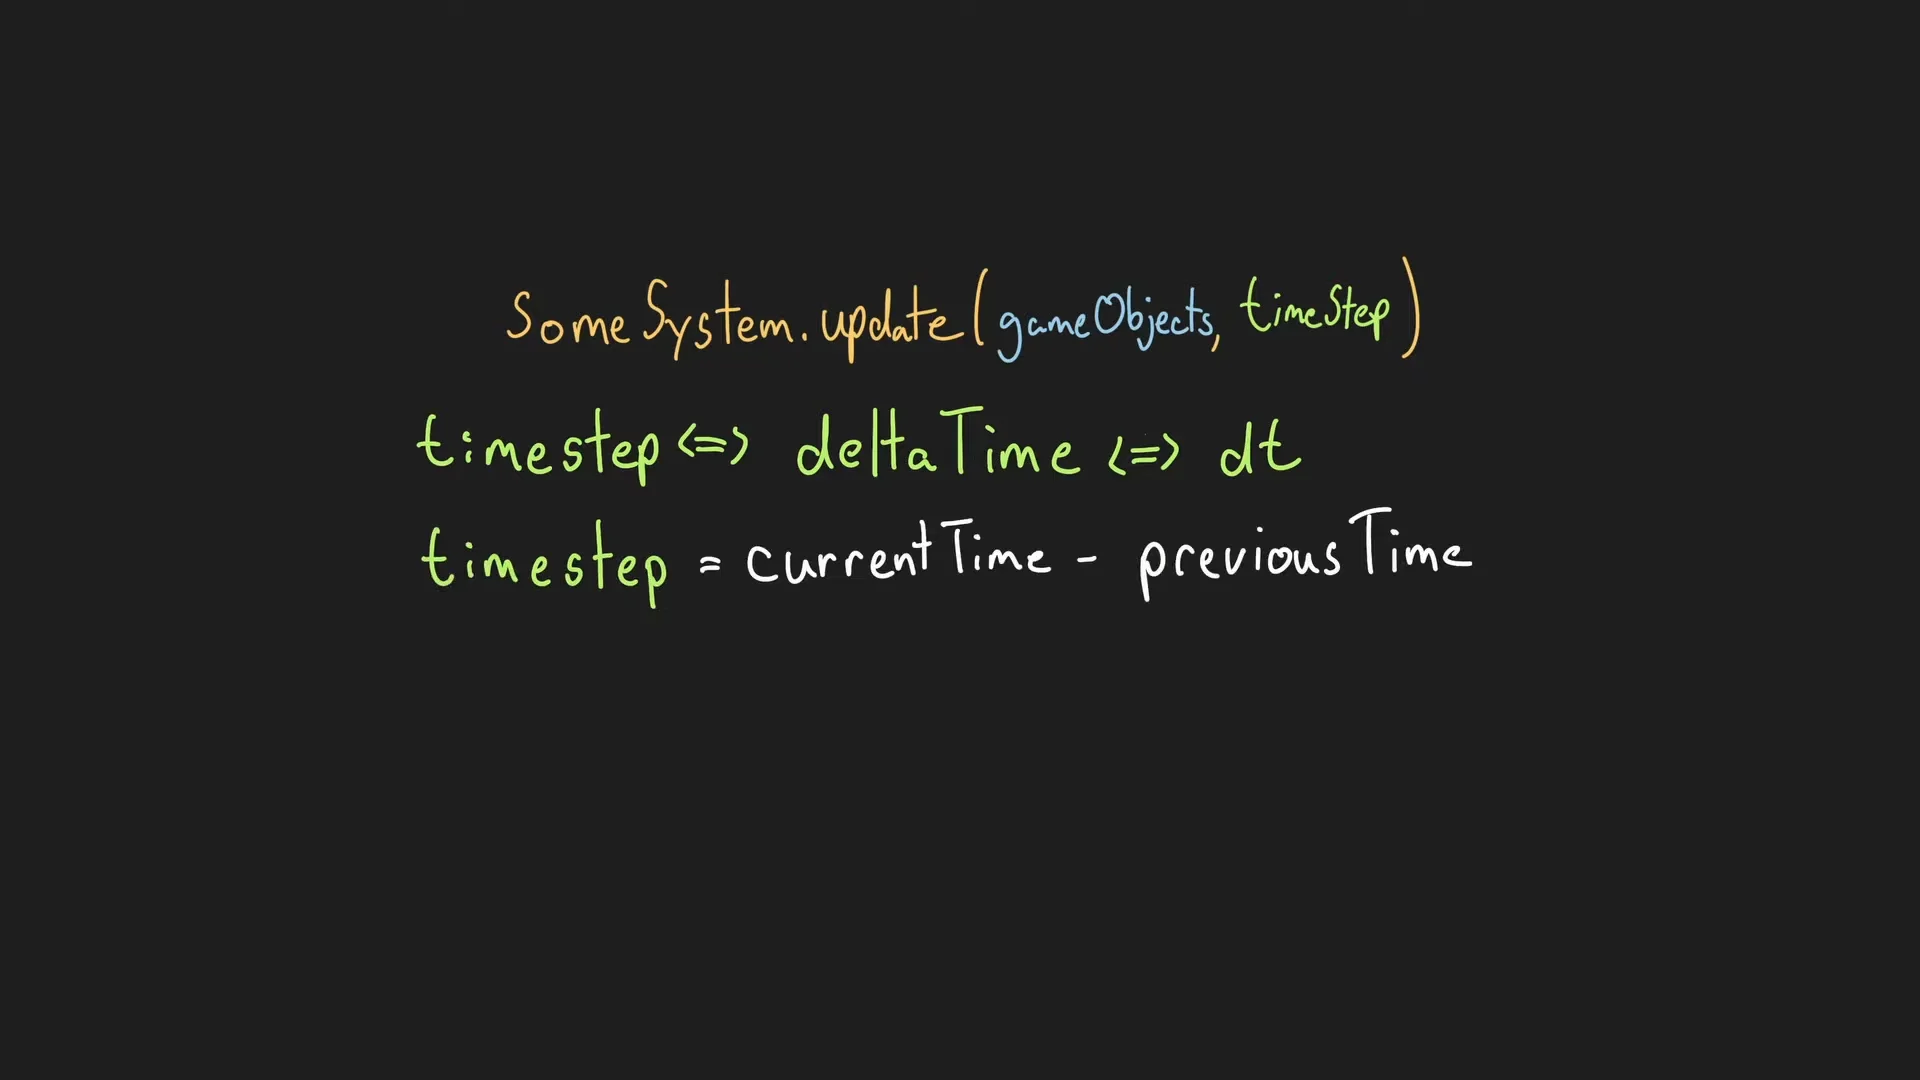 SomeSystem.update(gameObjects, timeStep)
timestep <=> deltaTime <=> dt
timestep = currentTime - previousTime